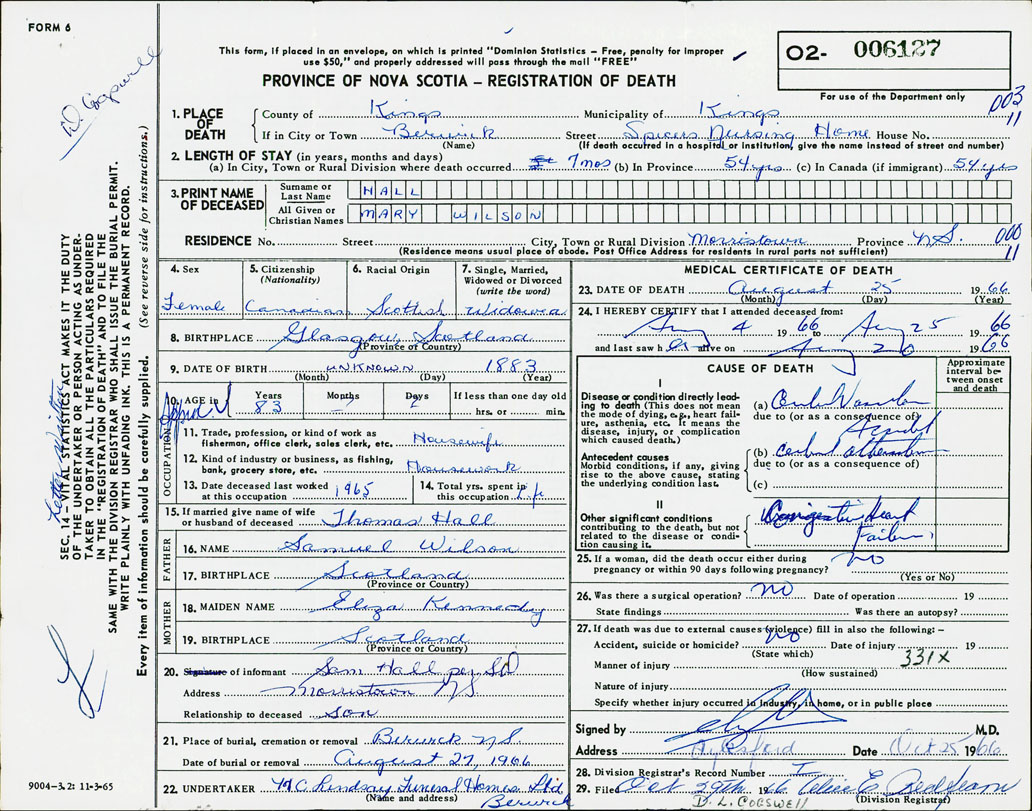 FORM 6
This form, if placed in an envelope, on which is printed "Dominion Statistics – Free, penalty for improper
use $50," and properly addressed will pass through the mail "FREE"
PROVINCE OF NOVA SCOTIA – REGISTRATION OF DEATH
O2- 006127
For use of the Department only
003
11
D. Cogswell
1. PLACE OF DEATH
County of Kings Municipality of Kings
If in City or Town Berwick Street Spicers Nursing Home House No.
(Name) (If death occurred in a hospital or institution, give the name instead of street and number)
2. LENGTH OF STAY (in years, months and days)
(a) In City, Town or Rural Division where death occurred 7 mos (b) In Province 54 yrs (c) In Canada (if immigrant) 54 yrs
3. PRINT NAME OF DECEASED
Surname or Last Name HALL
All Given or Christian Names MARY WILSON
RESIDENCE No. Street City, Town or Rural Division Morristown Province N.S. 000
11
(Residence means usual place of abode. Post Office Address for residents in rural parts not sufficient)
SEC. 14 – VITAL STATISTICS ACT MAKES IT THE DUTY
OF THE UNDERTAKER OR PERSON ACTING AS UNDER-
TAKER TO OBTAIN ALL THE PARTICULARS REQUIRED
IN THE "REGISTRATION OF DEATH" AND TO FILE THE
SAME WITH THE DIVISION REGISTRAR WHO SHALL ISSUE THE BURIAL PERMIT.
WRITE PLAINLY WITH UNFADING INK. THIS IS A PERMANENT RECORD.
Every item of information should be carefully supplied. (See reverse side for instructions.)
Letter written
4. Sex
Female
5. Citizenship
(Nationality)
Canadian
6. Racial Origin
Scottish
7. Single, Married,
Widowed or Divorced
(write the word)
Widowed
8. BIRTHPLACE Glasgow, Scotland
(Province or Country)
9. DATE OF BIRTH UNKNOWN 1883
(Month) (Day) (Year)
10. AGE in Years Months Days If less than one day old
83 hrs. or min.
OCCUPATION
11. Trade, profession, or kind of work as
fisherman, office clerk, sales clerk, etc. Housewife
12. Kind of industry or business, as fishing,
bank, grocery store, etc. Housework
13. Date deceased last worked
at this occupation 1965
14. Total yrs. spent in
this occupation Life
15. If married give name of wife
or husband of deceased Thomas Hall
FATHER
16. NAME Samuel Wilson
17. BIRTHPLACE Scotland
(Province or Country)
MOTHER
18. MAIDEN NAME Eliza Kennedy
19. BIRTHPLACE Scotland
(Province or Country)
20. Signature of informant Sam Hall per
Address Morristown NS
Relationship to deceased son
21. Place of burial, cremation or removal Berwick NS
Date of burial or removal August 27, 1966
22. UNDERTAKER H C Lindsay Funeral Homes Ltd
(Name and address) Berwick
MEDICAL CERTIFICATE OF DEATH
23. DATE OF DEATH August 25 1966
(Month) (Day) (Year)
24. I HEREBY CERTIFY that I attended deceased from:
Aug 4 1966 to Aug 25 1966
and last saw her alive on Aug 20 1966
CAUSE OF DEATH
Approximate
interval be-
tween onset
and death
I
Disease or condition directly lead-
ing to death (This does not mean
the mode of dying, e.g., heart fail-
ure, asthenia, etc. It means the
disease, injury, or complication
which caused death.)
(a) Vascular
due to (or as a consequence of)
Accident
Antecedent causes
Morbid conditions, if any, giving
rise to the above cause, stating
the underlying condition last.
(b) cerebral
due to (or as a consequence of)
(c)
II
Other significant conditions
contributing to the death, but not
related to the disease or condi-
tion causing it.
Congestive Heart
Failure
25. If a woman, did the death occur either during
pregnancy or within 90 days following pregnancy? no
(Yes or No)
26. Was there a surgical operation? no Date of operation 19
State findings Was there an autopsy?
27. If death was due to external causes (violence) fill in also the following: –
Accident, suicide or homicide? no Date of injury 19
(State which)
331X
Manner of injury
(How sustained)
Nature of injury
Specify whether injury occurred in industry, in home, or in public place
Signed by M.D.
Address Aylesford Date Oct 25 1966
28. Division Registrar's Record Number
29. Filed Oct 29th 1966 Alice E.
D. L. COGSWELL (Division Registrar)
9004-3.2: 11-3-65